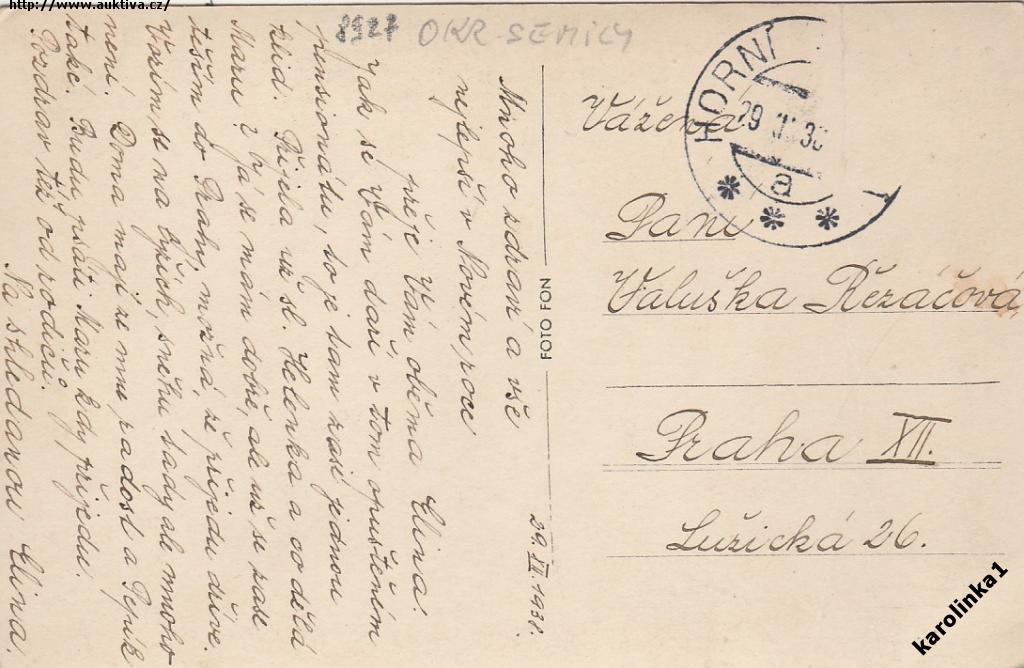 http://www.auktiva.cz/
8927 OKR. SEMILY
HORNÍ
29
38
a
29. XII. 1938.
Mnoho zdraví a vše
nejlepší v Novém roce
přeje Vám oběma Elina.
Jak se Vám daří v tom opuštěném
pensionátu, to je tam zasí jednou
klid. Přijela už sl. Helenka a co dělá
Maru? Já se mám dobře, ale už se zase
těším do Prahy, možná, že přijedu dříve.
Vozím se na lyžích, sněhu tady ale mnoho
není. Doma mají ze mne radost a Pepík
také. Budu psáti Maru kdy přijedu.
Pozdrav též od rodičů.
Na shledanou Elina.
FOTO FON
Vážená
Paní
Valuška Řezáčová
Praha XII.
Lužická 26.
karolinka1